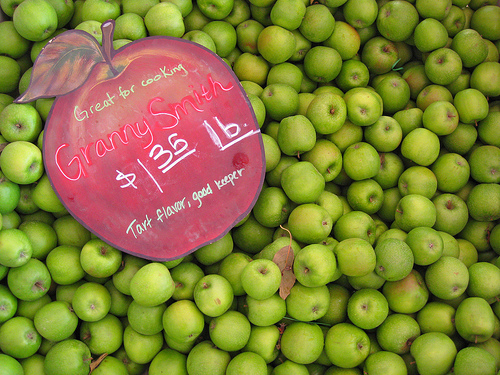 Great for cooking
Granny Smith
$1 35 lb.
Tart flavor, good keeper